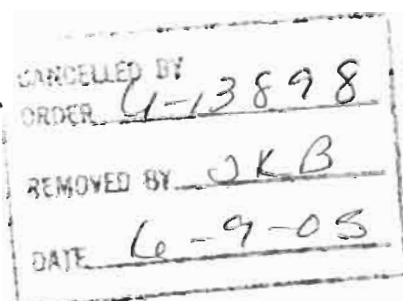 CANCELLED BY
ORDER U-13898
REMOVED BY JKB
DATE 6-9-05